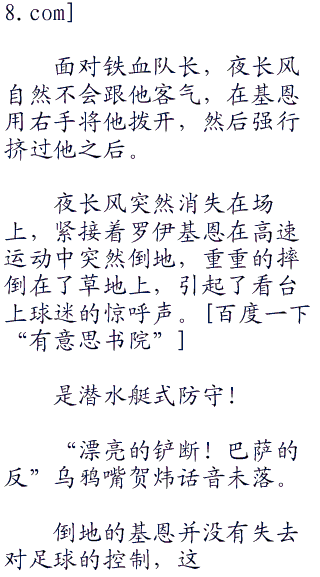 8.com]
面对铁血队长，夜长风
自然不会跟他客气，在基恩
用右手将他拨开，然后强行
挤过他之后。
夜长风突然消失在场
上，紧接着罗伊基恩在高速
运动中突然倒地，重重的摔
倒在了草地上，引起了看台
上球迷的惊呼声。[百度一下
“有意思书院”]
是潜水艇式防守！
“漂亮的铲断！巴萨的
反”乌鸦嘴贺炜话音未落。
倒地的基恩并没有失去
对足球的控制，这